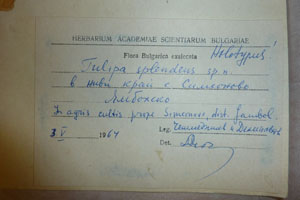 HERBARIUM ACADEMIAE SCIENTIARUM BULGARIAE
Flora Bulgarica exsiccata Holotypus!
Tulipa splendens sp. n.
в ниви край с. Симеоново
Ямболско
In agris cultis prope Simeonovo, dist. Jambol
3 V 1964 Leg.
Det.